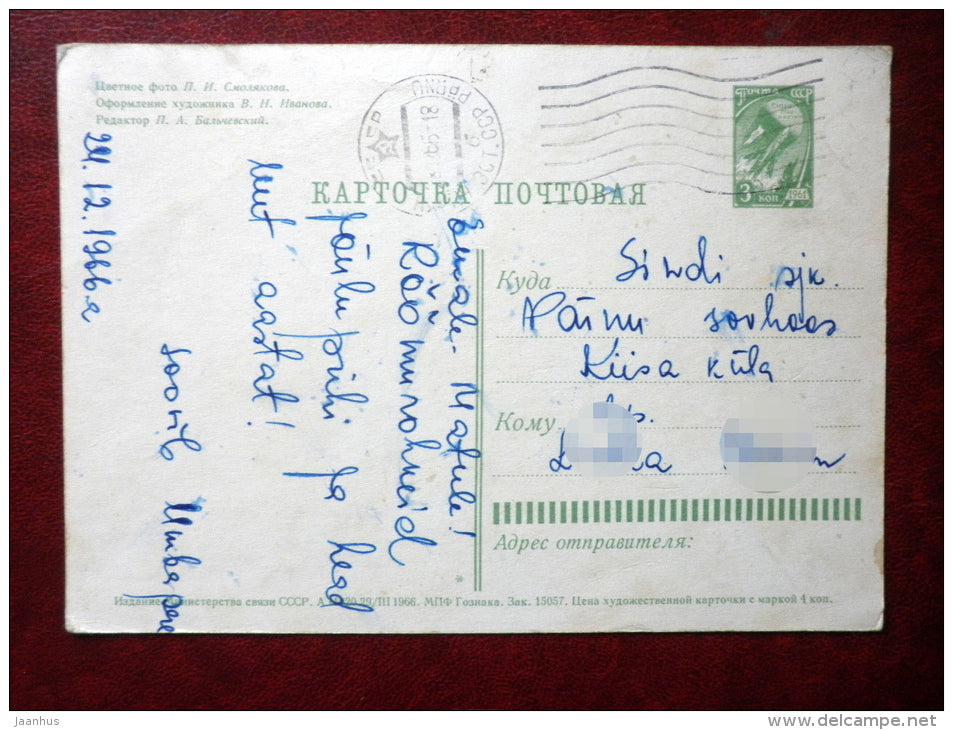 Цветное фото П. И. Смолякова.
Оформление художника В. Н. Иванова.
Редактор П. А. Бальчевский.
PÄRNU
ПОЧТА СССР
3 КОП
1961
КАРТОЧКА ПОЧТОВАЯ
24.12.1966a
Emale-Matule!
Rõõmurohkeid
jõulupühi ja head
uut aastat!
soovib Umbapere
Куда Sindi sjk.
Pärnu sovhoos
Kiisa küla
Кому
Адрес отправителя:
Издание Министерства связи СССР. 29/III 1966. МПФ Гознака. Зак. 15057. Цена художественной карточки с маркой 4 коп.
jaanhus
www.delcampe.net